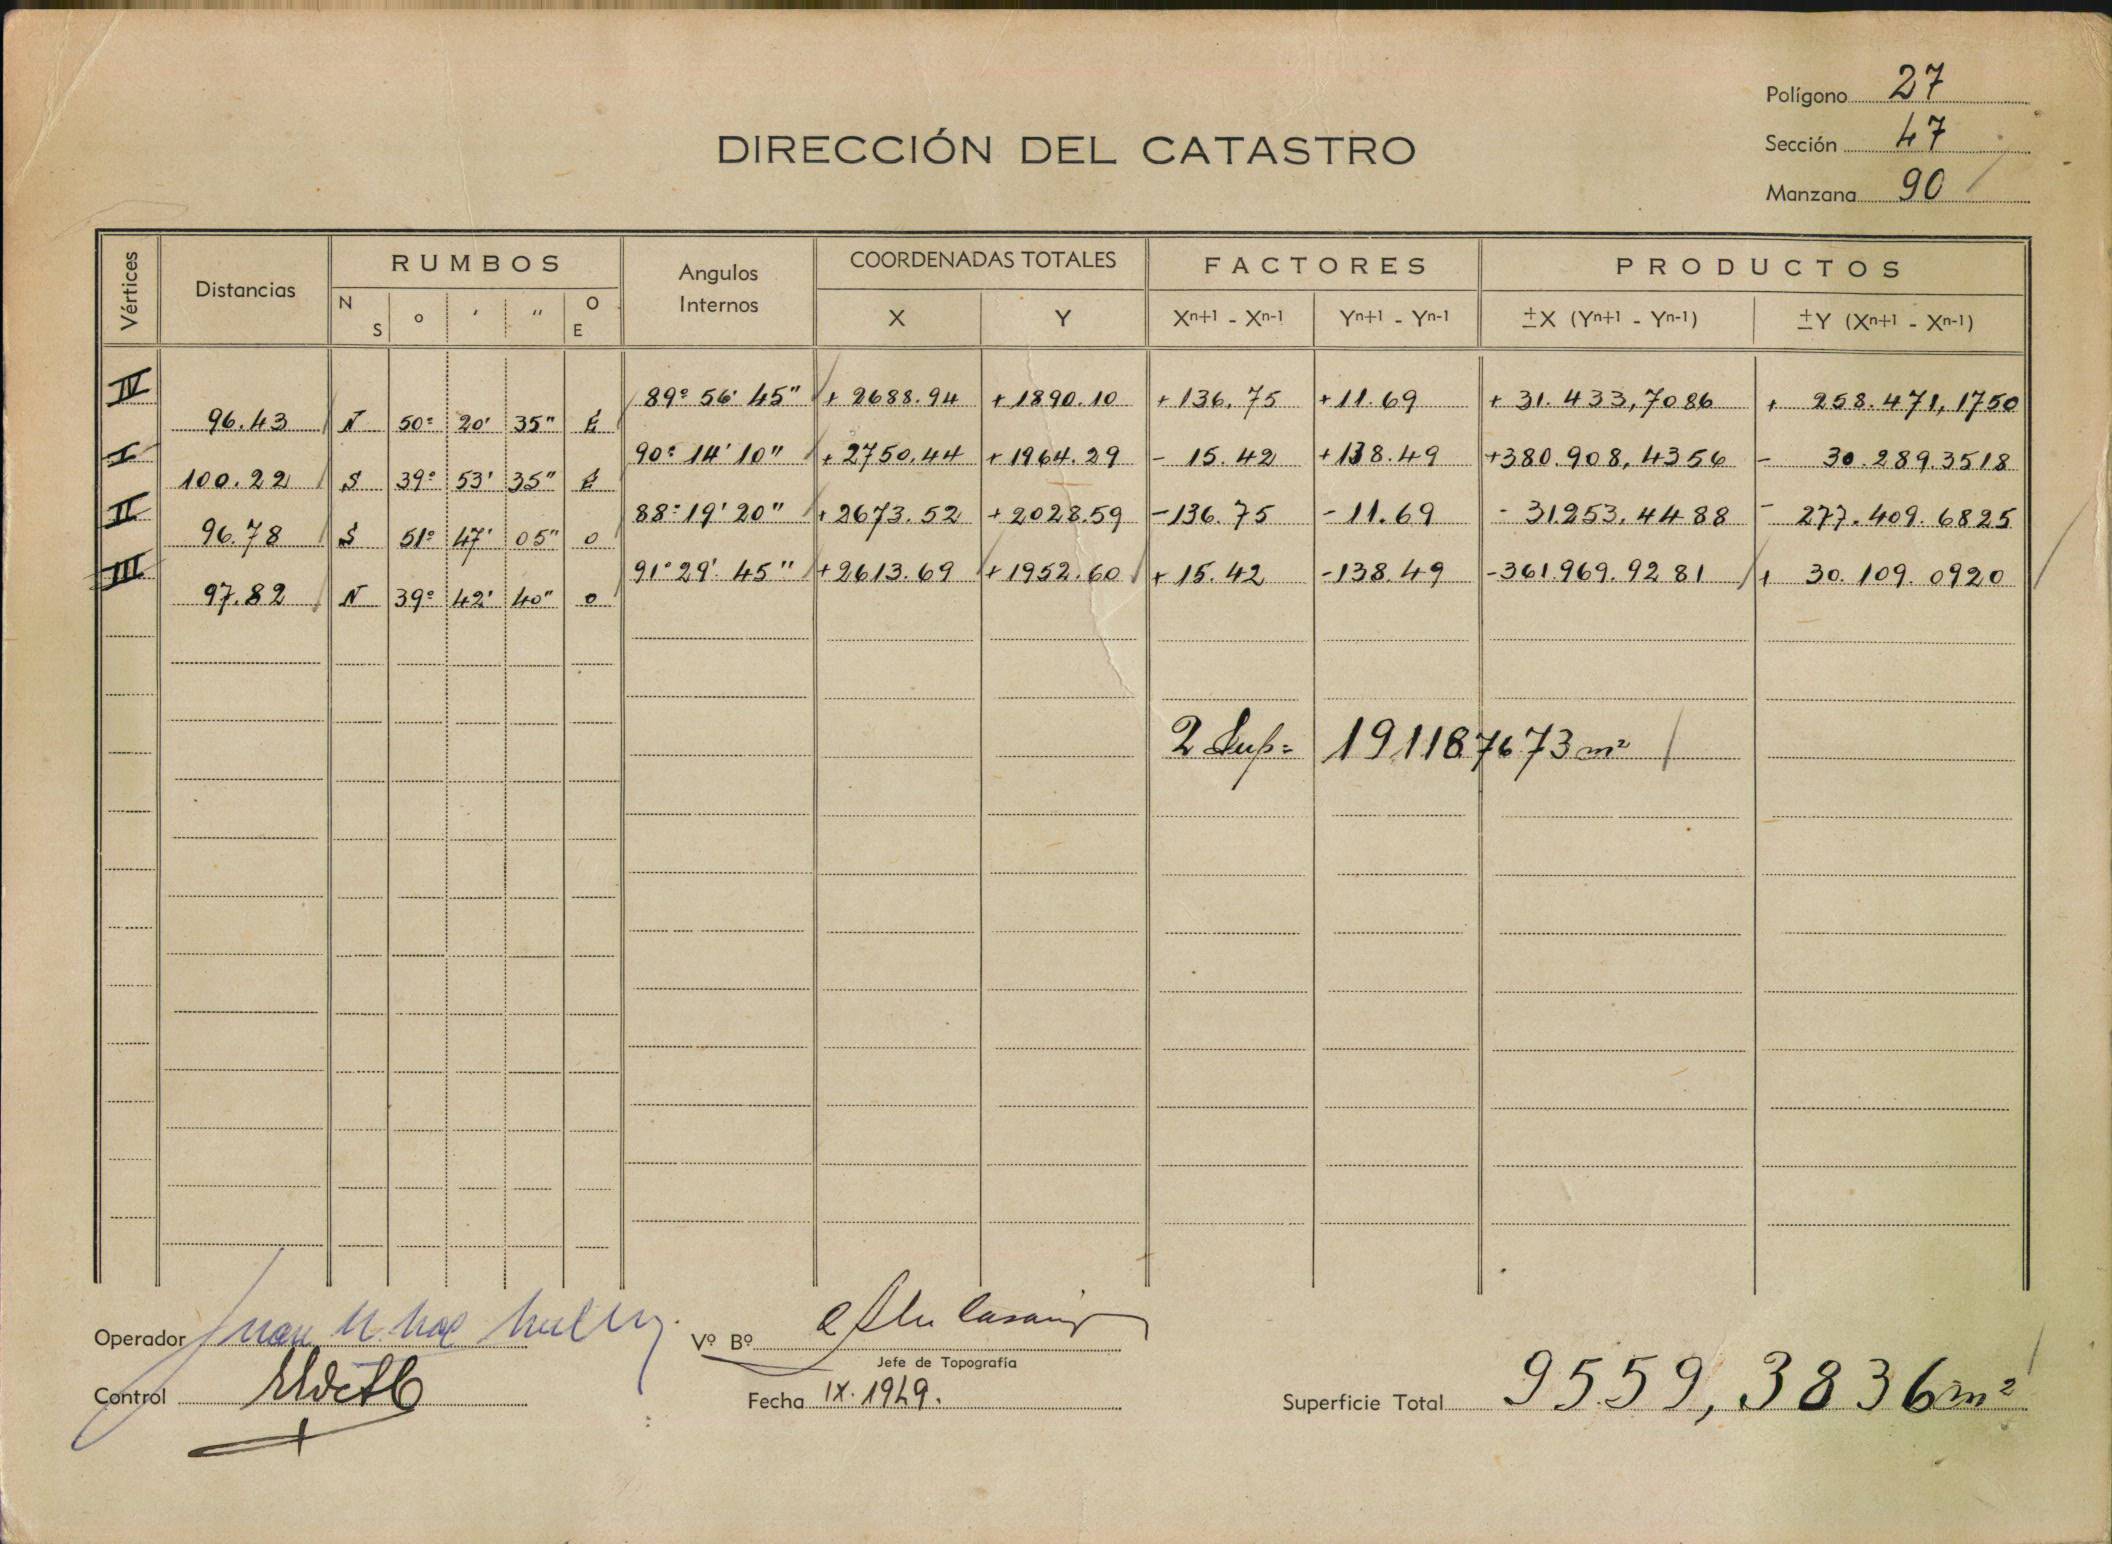 Polígono 27
DIRECCIÓN DEL CATASTRO
Sección 47
Manzana 90
Vértices Distancias RUMBOS Angulos Internos COORDENADAS TOTALES FACTORES PRODUCTOS
N S ° ' " O E X Y Xn+1 - Xn-1 Yn+1 - Yn-1 ±X (Yn+1 - Yn-1) ±Y (Xn+1 - Xn-1)
IV 89° 56' 45" + 2688.94 + 1890.10 + 136.75 + 11.69 + 31.433,7086 + 258.471,1750
96.43 N 50° 20' 35" E
I 90° 14' 10" + 2750.44 + 1964.29 - 15.42 + 138.49 + 380.908,4356 - 30.289.3518
100.22 S 39° 53' 35" E
II 88° 19' 20" + 2673.52 + 2028.59 - 136.75 - 11.69 - 31253.4488 - 277.409.6825
96.78 S 51° 47' 05" O
III 91° 29' 45" + 2613.69 + 1952.60 + 15.42 - 138.49 - 361969.9281 + 30.109.0920
97.82 N 39° 42' 40" O
2 Sup= 191187673 m²
Operador
Vº Bº
Jefe de Topografía
Control
Fecha IX. 1949.
Superficie Total 9559,3836 m²